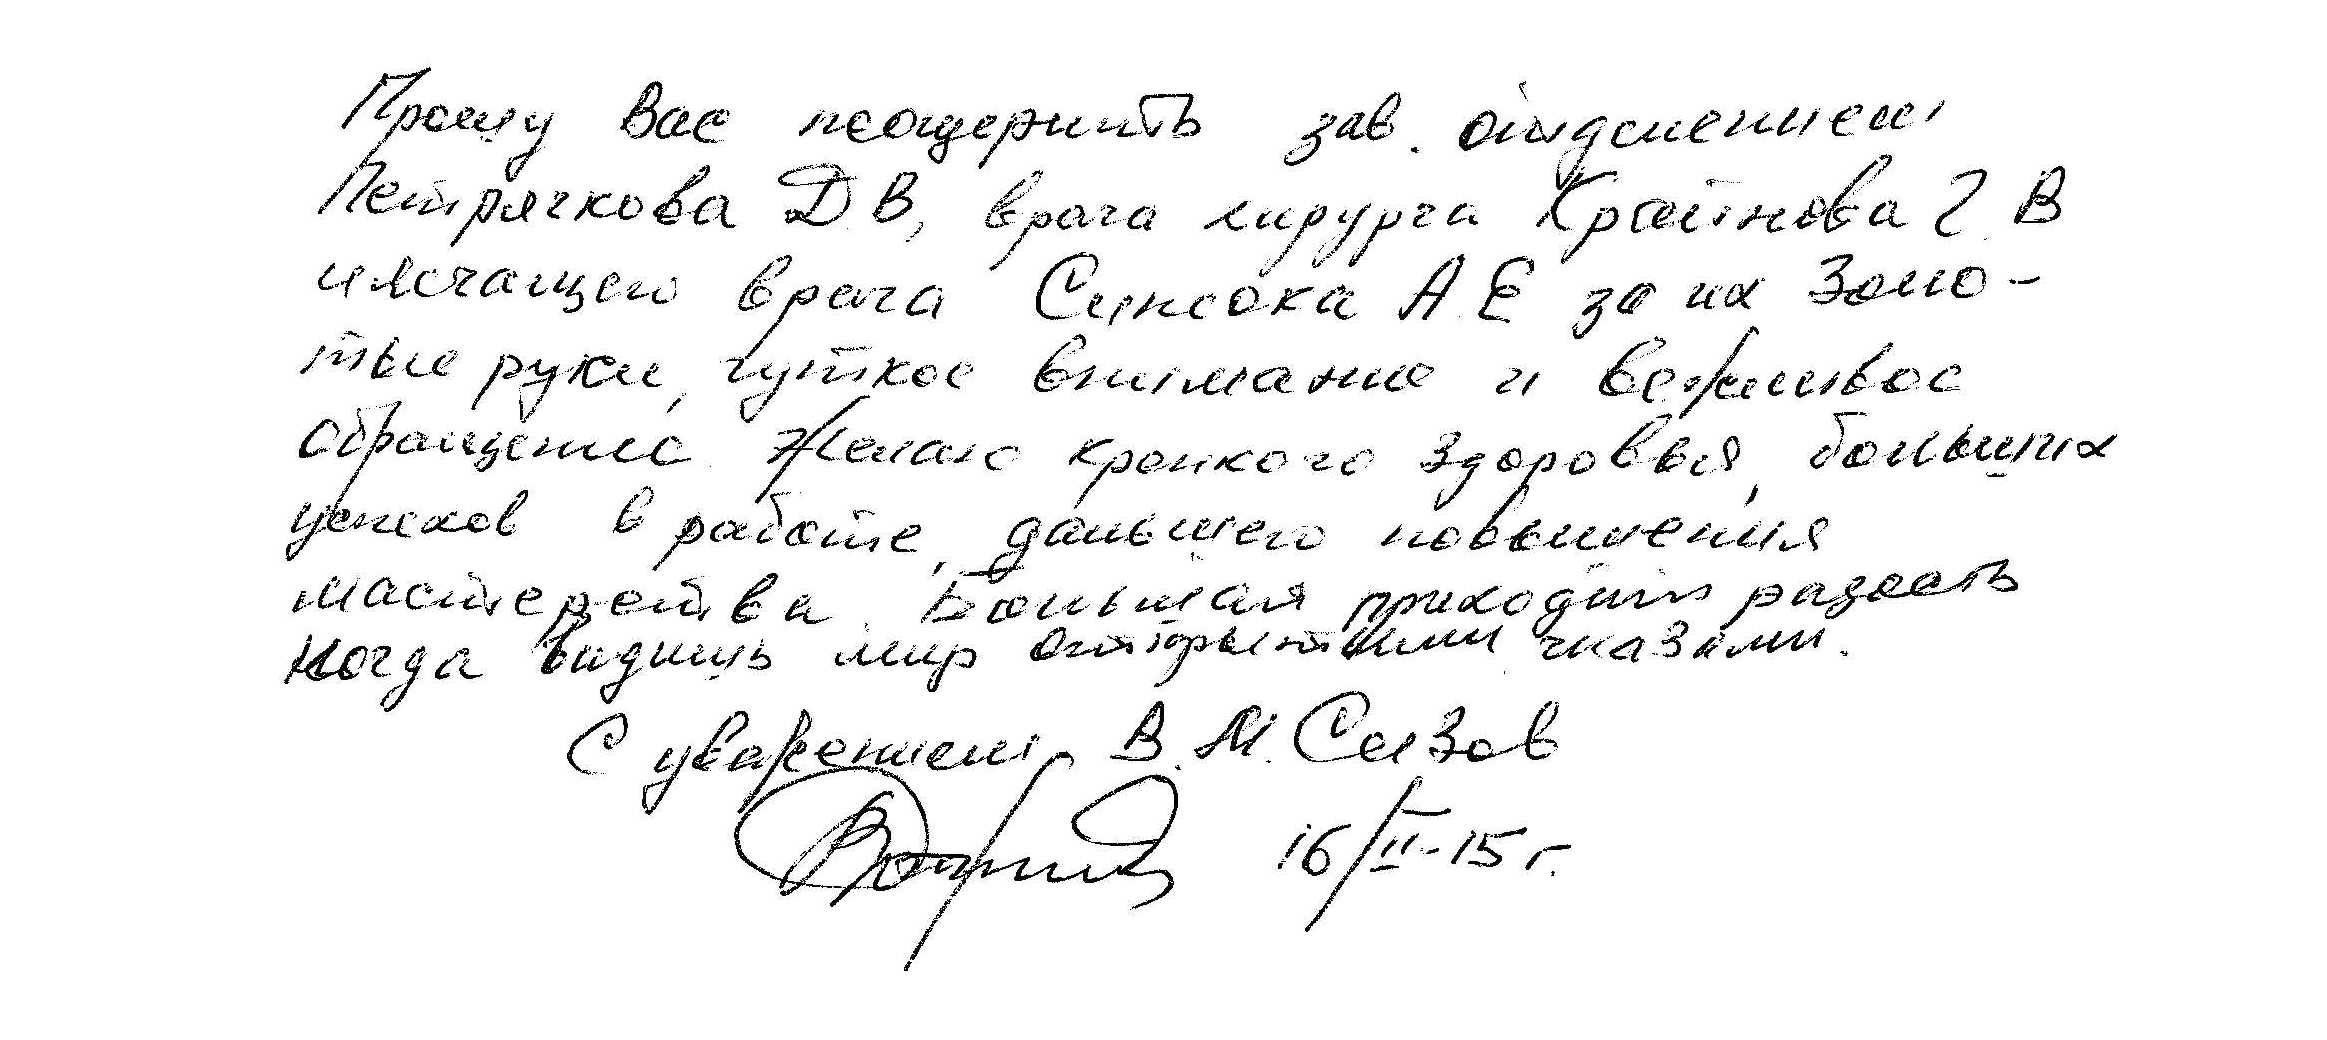 Прошу Вас поощерить зав. отделением
Петрячкова Д.В, врача хирурга Крайнова Г.В
и лечащего врача Синеока А.Е за их золо-
тые руки, чуткое внимание и вежливое
обращение. Желаю крепкого здоровья, больших
успехов в работе, дальшего повышения
мастерства. Большая приходит радость
когда видишь мир открытыми глазами.
С уважением В.М. Сизов
16/II-15 г.